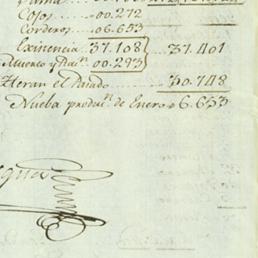 Cojos . . . 00.272
Corderos . 06.653
Existencia 37.108 . . 37.401
Muerto y Dac.ⁿ 00.293
Heran el Pasado . . . 30.748
Nueba produc.ⁿ de Enero 06.653